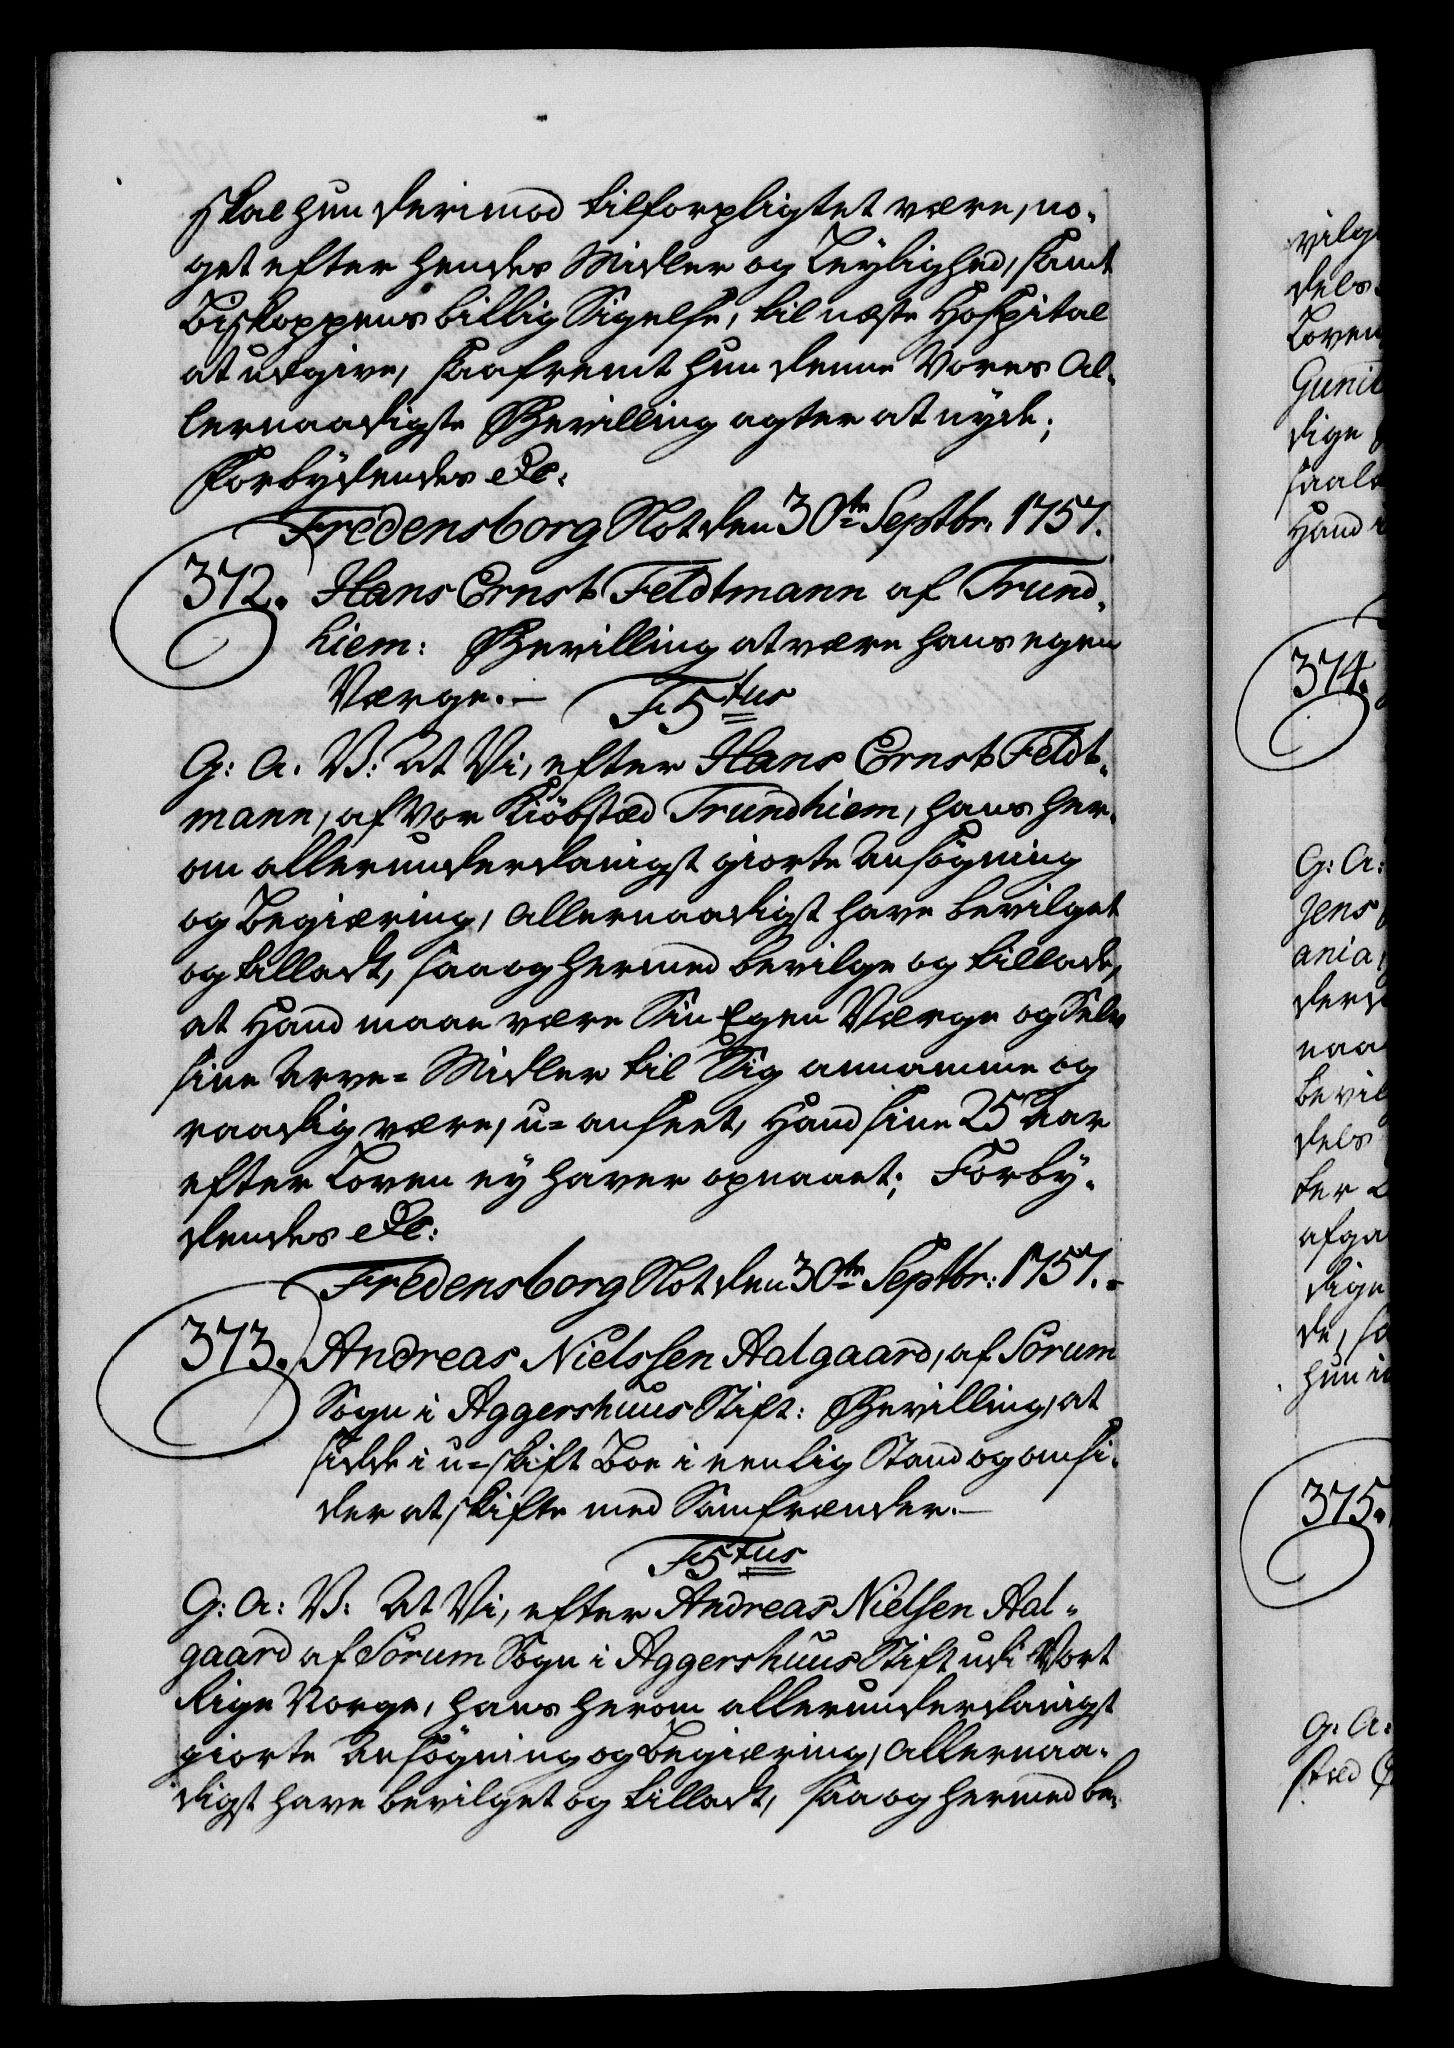 skal hun derimod tilforpligtet være, no-
get efter hendes Midler og Leylighed, samt
Biskoppens billig Sigelse, til næste Hospital
at udgive, saafremt hun denne Vores Al-
lernaadigste Bevilling agter at nyde;
Forbydendes etc:
Fredensborg Slot den 30te Septbr: 1757.
372. Hans Ernst Feldtmann af Trund-
hiem: Bevilling at være hans egen
Værge.— F 5tus
G: A. V: At Vi, efter Hans Ernst Feldt-
mann, af Vor Kiöbstæd Trundhiem, hans her-
om allerunderdanigst giorte Ansögning
og Begiæring, allernaadigst have bevilget
og tilladt, saa og hermed bevilge og tillade,
at Hand maae være Sin Egen Værge og Selv
sine Arve= Midler til Sig annamme og
raadig være, u=anseet, Hand sine 25 Aar
efter Loven ey haver opnaaet; Forby-
dendes etc:
Fredensborg Slot den 30te Septbr: 1757.=
373. Andreas Nielssen Aalgaard, af Sörum
Sogn i Aggershuus Stift: Bevilling, at
sidde i u=skift Boe i eenlig Stand og omsi-
der at skifte med Samfrænder.—
F 5tus
G: A: V: At Vi, efter Andreas Nielsen Aal-
gaard af Sörum Sogn i Aggershuus Stift udi Vort
Rige Norge, hans herom allerunderdanigst
giorte Ansögning og Begiæring, Allernaa-
digst have bevilget og tilladt, saa og hermed be-
vilge
dels
Loven
Gunil
dige
saale
Hand
374.
G: A:
Jens
ania,
derd
naa
bevil
dels
ter L
afga
dige
de, sa
hun i
375.
G: A:
stæd